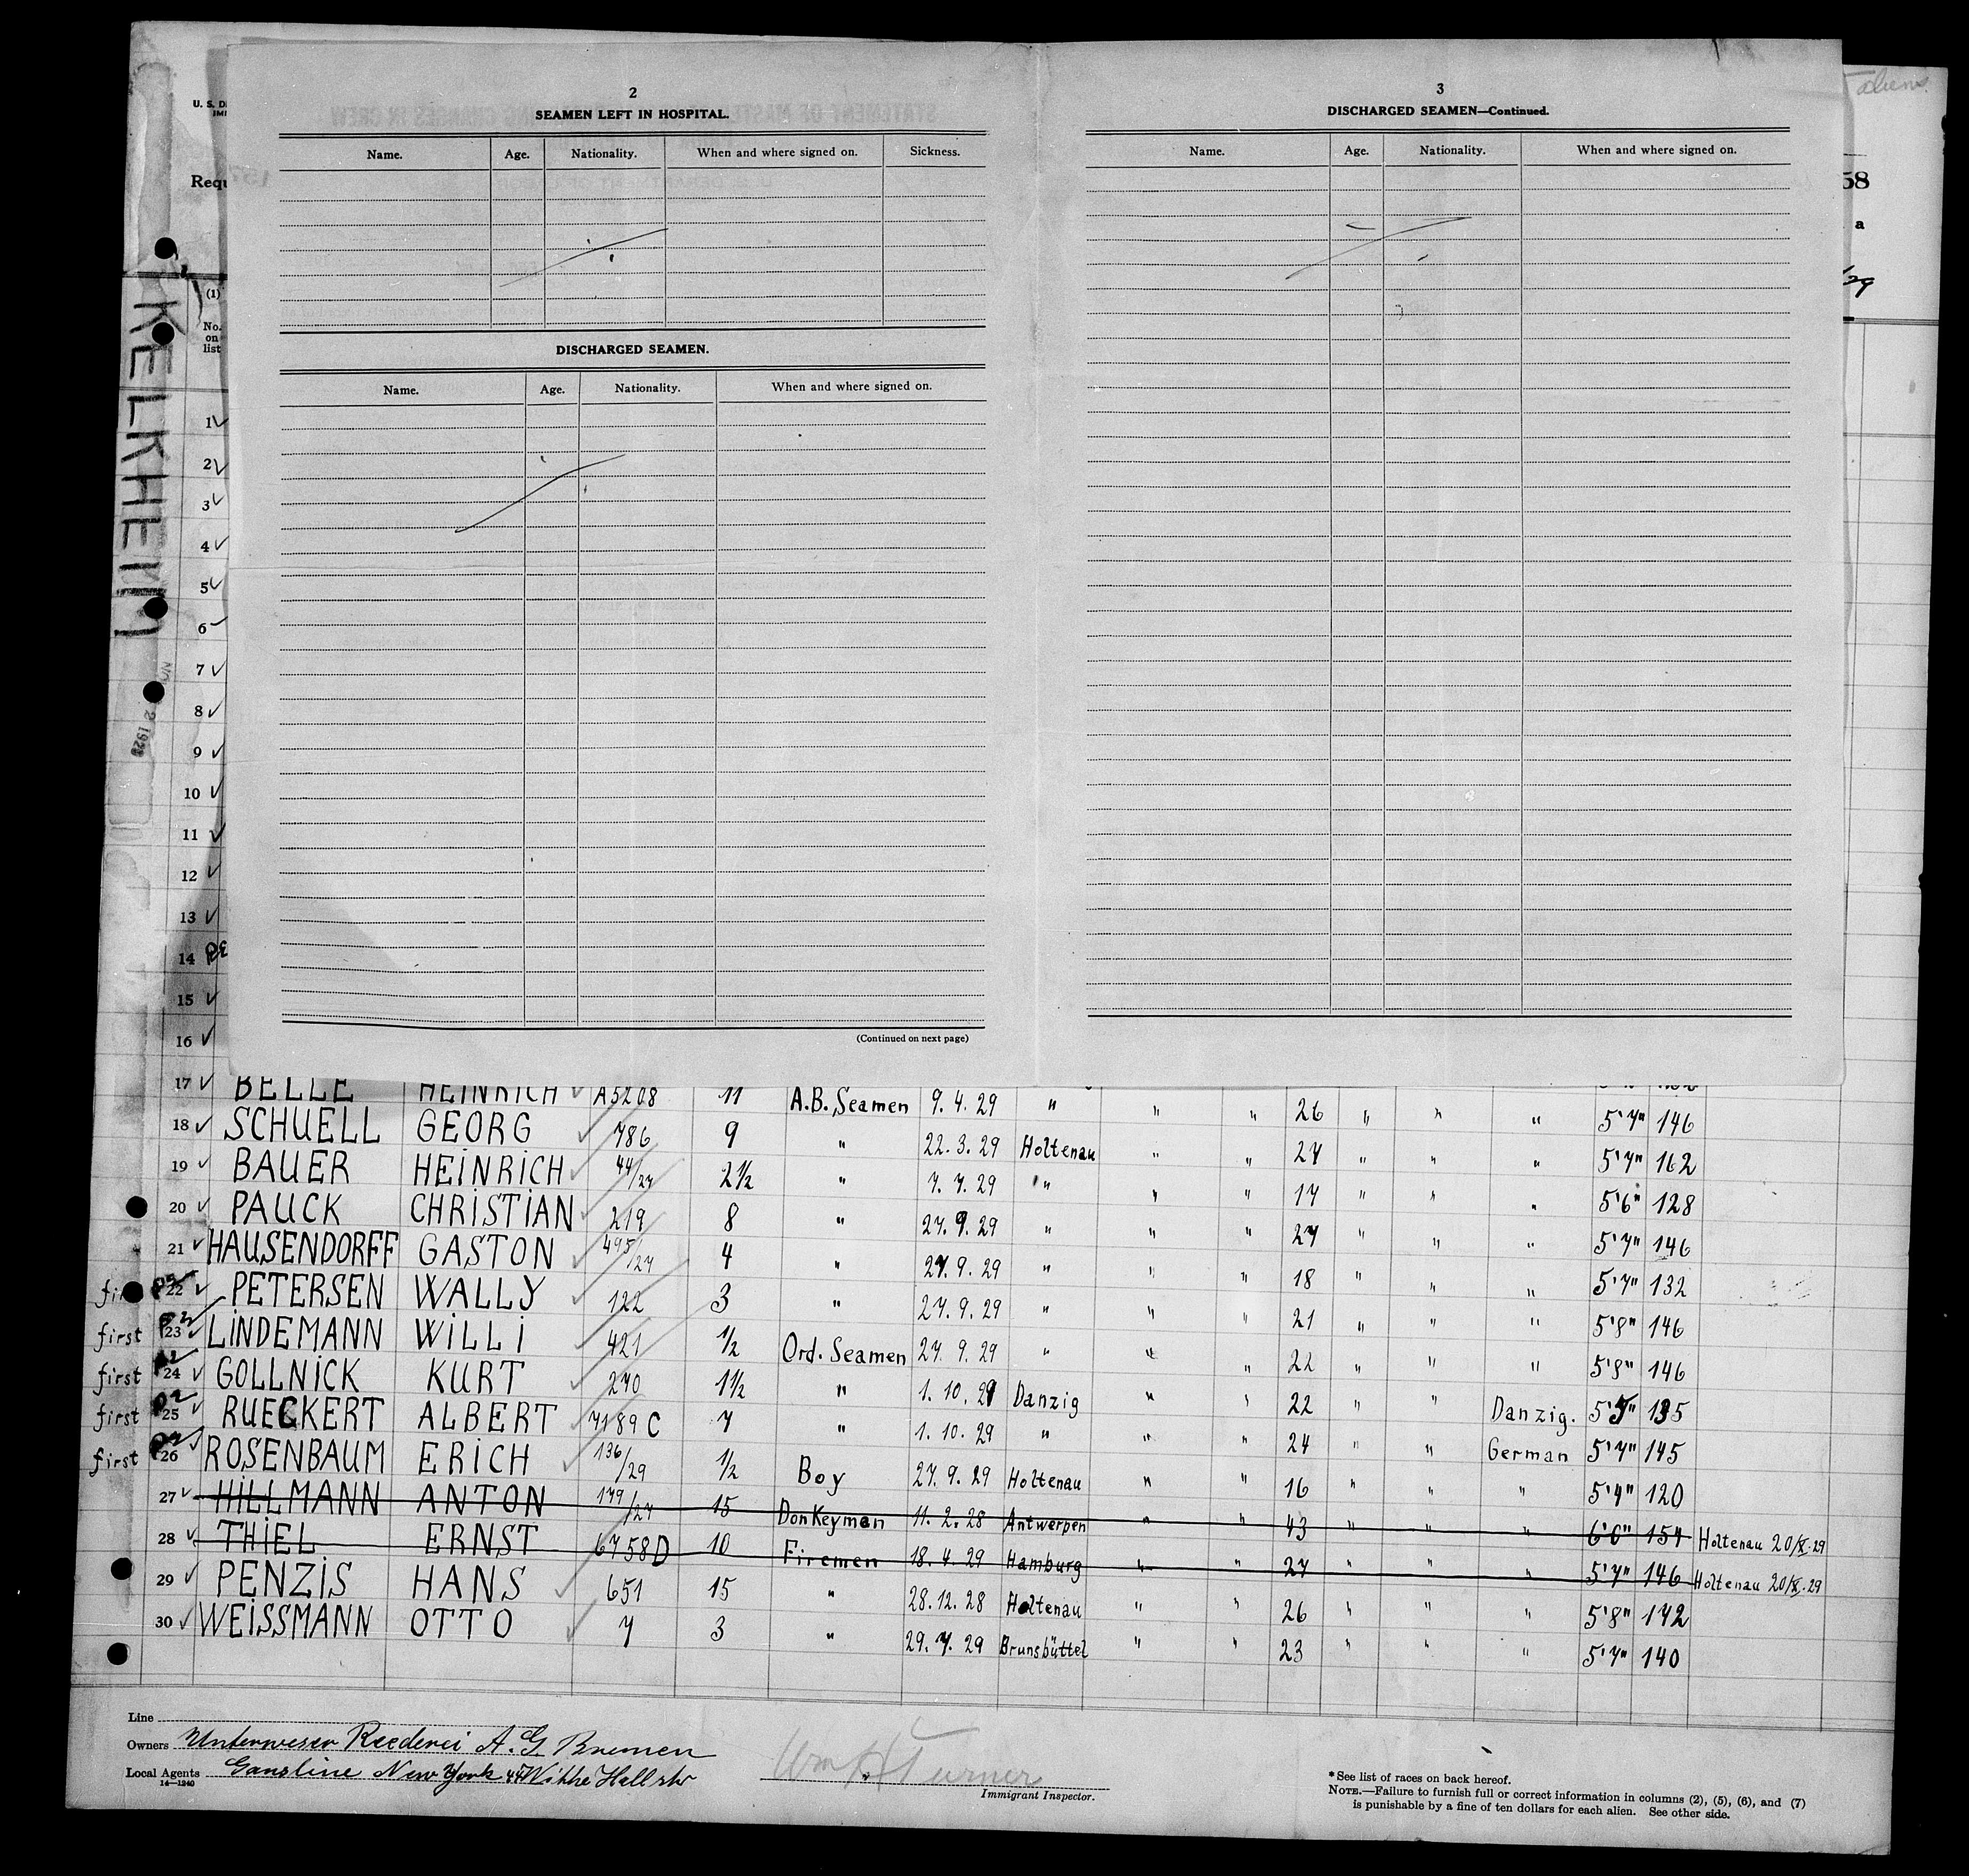 2
SEAMEN LEFT IN HOSPITAL.
Name. Age. Nationality. When and where signed on. Sickness.
DISCHARGED SEAMEN.
Name. Age. Nationality. When and where signed on.
(Continued on next page)
3
DISCHARGED SEAMEN—Continued.
Name. Age. Nationality. When and where signed on.
aliens
58
a
U. S. D
IM
Requ
KELKHEIM
(1)
No. on list
1 ✓
2 ✓
3 ✓
4 ✓
5 ✓
6 ✓
7 ✓
8 ✓
9 ✓
10 ✓
11 ✓
12 ✓
13 ✓
14
15 ✓
16 ✓
17 ✓ BELLE HEINRICH ✓ A5208 11 A.B. Seamen 9.4.29 " " " 26 " " " 5'7" 146
18 ✓ SCHUELL GEORG ✓ 786 9 " 22.3.29 Holtenau " " 27 " " " 5'7" 162
19 ✓ BAUER HEINRICH ✓ 44/27 2½ " 7.7.29 " " " 17 " " " 5'6" 128
20 ✓ PAUCK CHRISTIAN ✓ 219 8 " 27.9.29 " " " 27 " " " 5'7" 146
21 ✓ HAUSENDORFF GASTON ✓ 495/27 4 " 27.9.29 " " " 18 " " " 5'7" 132
22 ✓ PETERSEN WALLY ✓ 122 3 " 27.9.29 " " " 21 " " " 5'8" 146
first 23 ✓ LINDEMANN WILLI ✓ 421 ½ Ord. Seamen 27.9.29 " " " 22 " " " 5'8" 146
first 24 ✓ GOLLNICK KURT ✓ 270 1½ " 1.10.29 Danzig " " 22 " " Danzig. 5'5" 135
first 25 ✓ RUECKERT ALBERT ✓ 7189 C 7 " 1.10.29 " " " 24 " " German 5'7" 145
first 26 ✓ ROSENBAUM ERICH ✓ 136/29 ½ Boy 27.9.29 Holtenau " " 16 " " " 5'4" 120
27 ✓ HILLMANN ANTON 179/27 15 Donkeyman 11.2.28 Antwerpen " " 43 " " " 6'0" 154 Holtenau 20/X.29
28 ✓ THIEL ERNST 6758D 10 Firemen 18.4.29 Hamburg " " 27 " " " 5'7" 146 Holtenau 20/X.29
29 ✓ PENZIS HANS ✓ 651 15 " 28.12.28 Holtenau " " 26 " " " 5'8" 172
30 ✓ WEISSMANN OTTO ✓ 7 3 " 29.7.29 Brunsbüttel " " 23 " " " 5'7" 140
Line
Owners Unterweser Reederei A.G. Bremen
Local Agents Gansline New York
14—1240
Wm H Turner
Immigrant Inspector.
*See list of races on back hereof.
NOTE.—Failure to furnish full or correct information in columns (2), (5), (6), and (7)
is punishable by a fine of ten dollars for each alien. See other side.